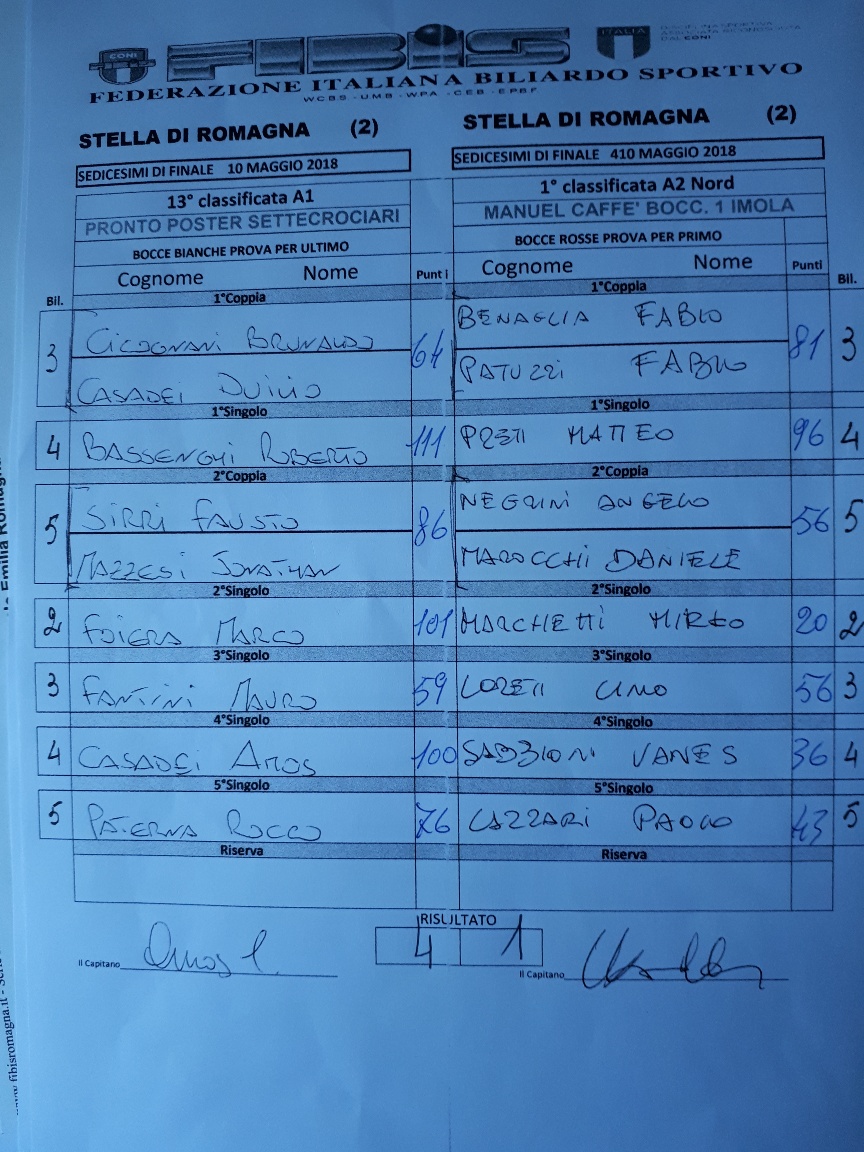 CONI
FIBiS
ITALIA
FEDERAZIONE ITALIANA BILIARDO SPORTIVO
WCBS - UMB - WPA - CEB - EPBF
STELLA DI ROMAGNA (2)
SEDICESIMI DI FINALE 10 MAGGIO 2018
13° classificata A1
PRONTO POSTER SETTECROCIARI
BOCCE BIANCHE PROVA PER ULTIMO
Cognome Nome Punti
STELLA DI ROMAGNA (2)
SEDICESIMI DI FINALE 410 MAGGIO 2018
1° classificata A2 Nord
MANUEL CAFFE' BOCC. 1 IMOLA
BOCCE ROSSE PROVA PER PRIMO
Cognome Nome Punti
Bil. 1°Coppia 1°Coppia Bil.
3 CICOGNANI BRUNALDO 64 BENAGLIA FABIO 81 3
CASADEI DUILIO PATUZZI FABIO
1°Singolo 1°Singolo
4 BASSENGHI ROBERTO 111 PRETI MATTEO 96 4
2°Coppia 2°Coppia
5 SIRRI FAUSTO 86 NEGRINI ANGELO 56 5
MAZZESI JONATHAN MAROCCHI DANIELE
2°Singolo 2°Singolo
2 FOIERA MARCO 101 MARCHETTI MIRKO 20 2
3°Singolo 3°Singolo
3 FANTINI MAURO 59 LORETI LINO 56 3
4°Singolo 4°Singolo
4 CASADEI AMOS 100 SABBIONI VANES 36 4
5°Singolo 5°Singolo
5 PATERNA ROCCO 76 LAZZARI PAOLO 43 5
Riserva Riserva
RISULTATO
4 1
Il Capitano
Il Capitano